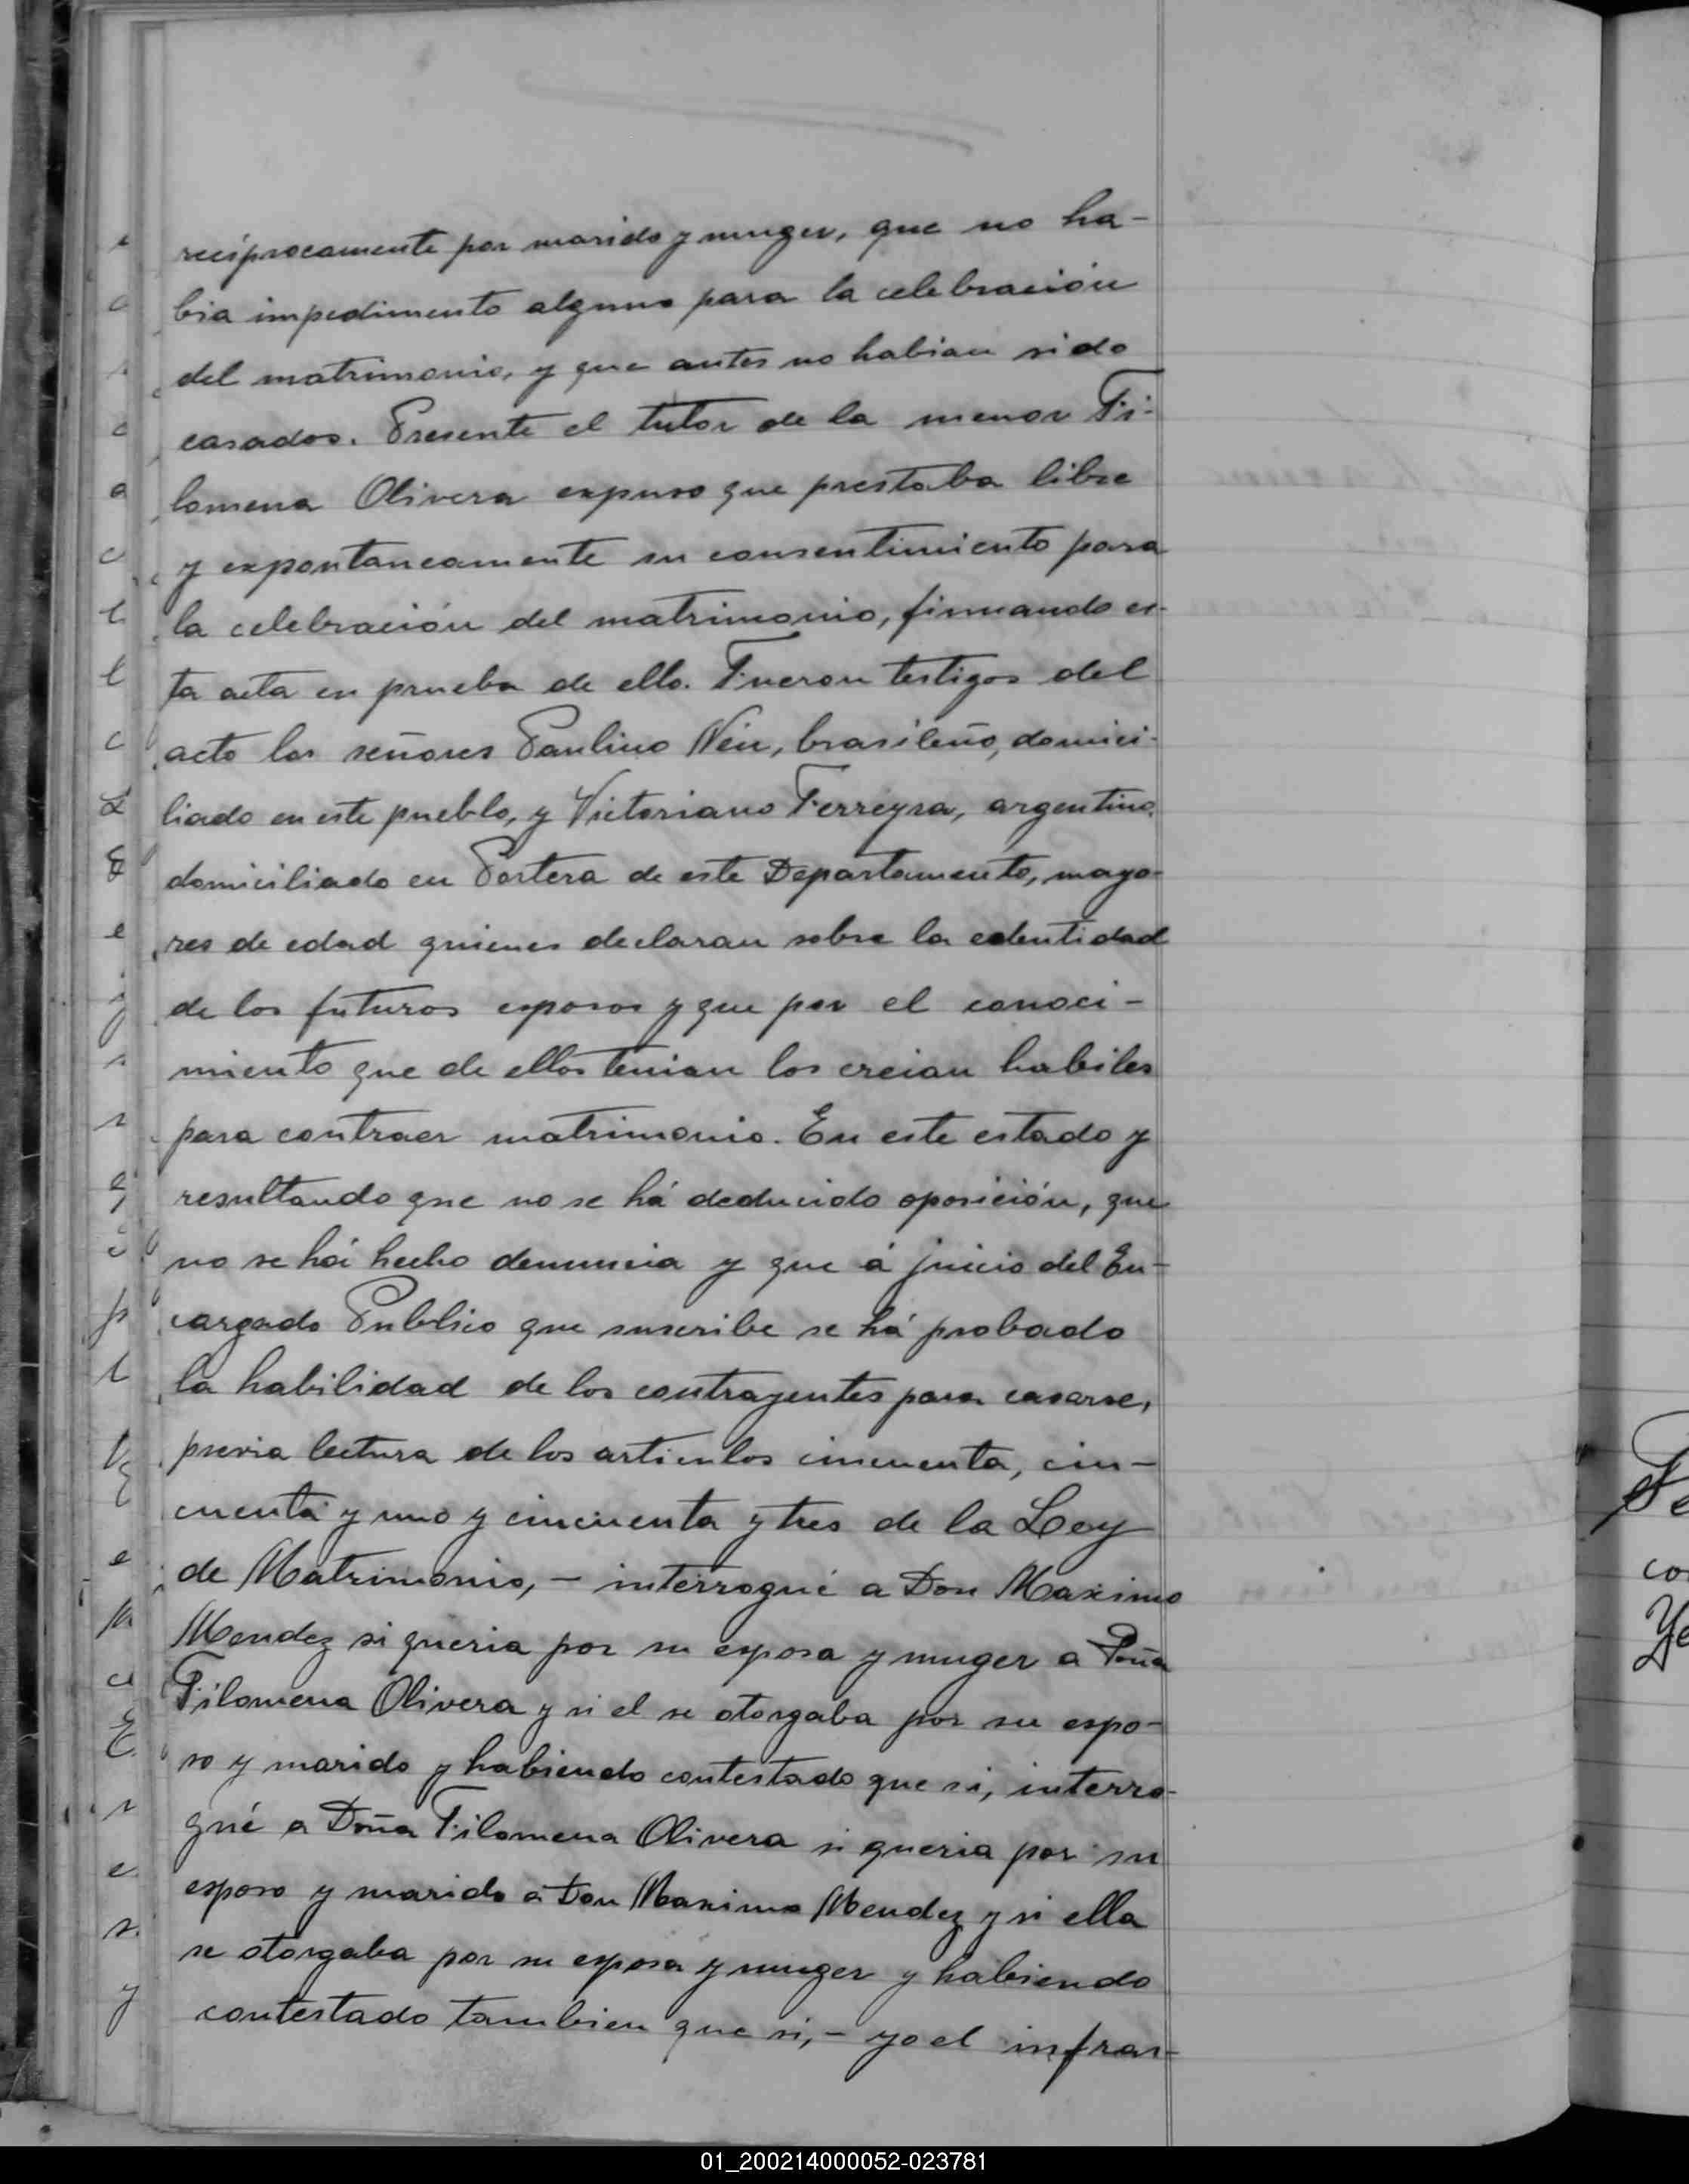 reciprocamente por marido y muger, que no ha-
bia impedimento alguno para la celebración
del matrimonio, y que antes no habian sido
casados. Presente el tutor de la menor Fi-
lomena Olivera expuso que prestaba libre
y expontaneamente su consentimiento para
la celebración del matrimonio, firmando es-
ta acta en prueba de ello. Fueron testigos del
acto los señores Paulino Nein, brasileño, domici-
liado en este pueblo, y Victoriano Ferreyra, argentino,
domiciliado en Portera de este Departamento, mayo-
res de edad quienes declaran sobre la edentidad
de los futuros esposos y que por el conoci-
miento que de ellos tenian los creian habiles
para contraer matrimonio. En este estado y
resultando que no se há deducido oposición, que
no se há hecho denuncia y que á juicio del En-
cargado Publico que suscribe se há probado
la habilidad de los contrayentes para casarse,
previa lectura de los articulos cincuenta, cin-
cuenta y uno y cincuenta y tres de la Ley
de Matrimonio, - interrogué a Don Maximo
Mendez si queria por su esposa y muger a Doña
Filomena Olivera y si el se otorgaba por su espo-
so y marido y habiendo contestado que si, interro-
gué a Doña Filomena Olivera si queria por su
esposo y marido á Don Maximo Mendez y si ella
se otorgaba por su esposa y muger y habiendo
contestado tambien que si, - yo el infras-
01_200214000052-023781